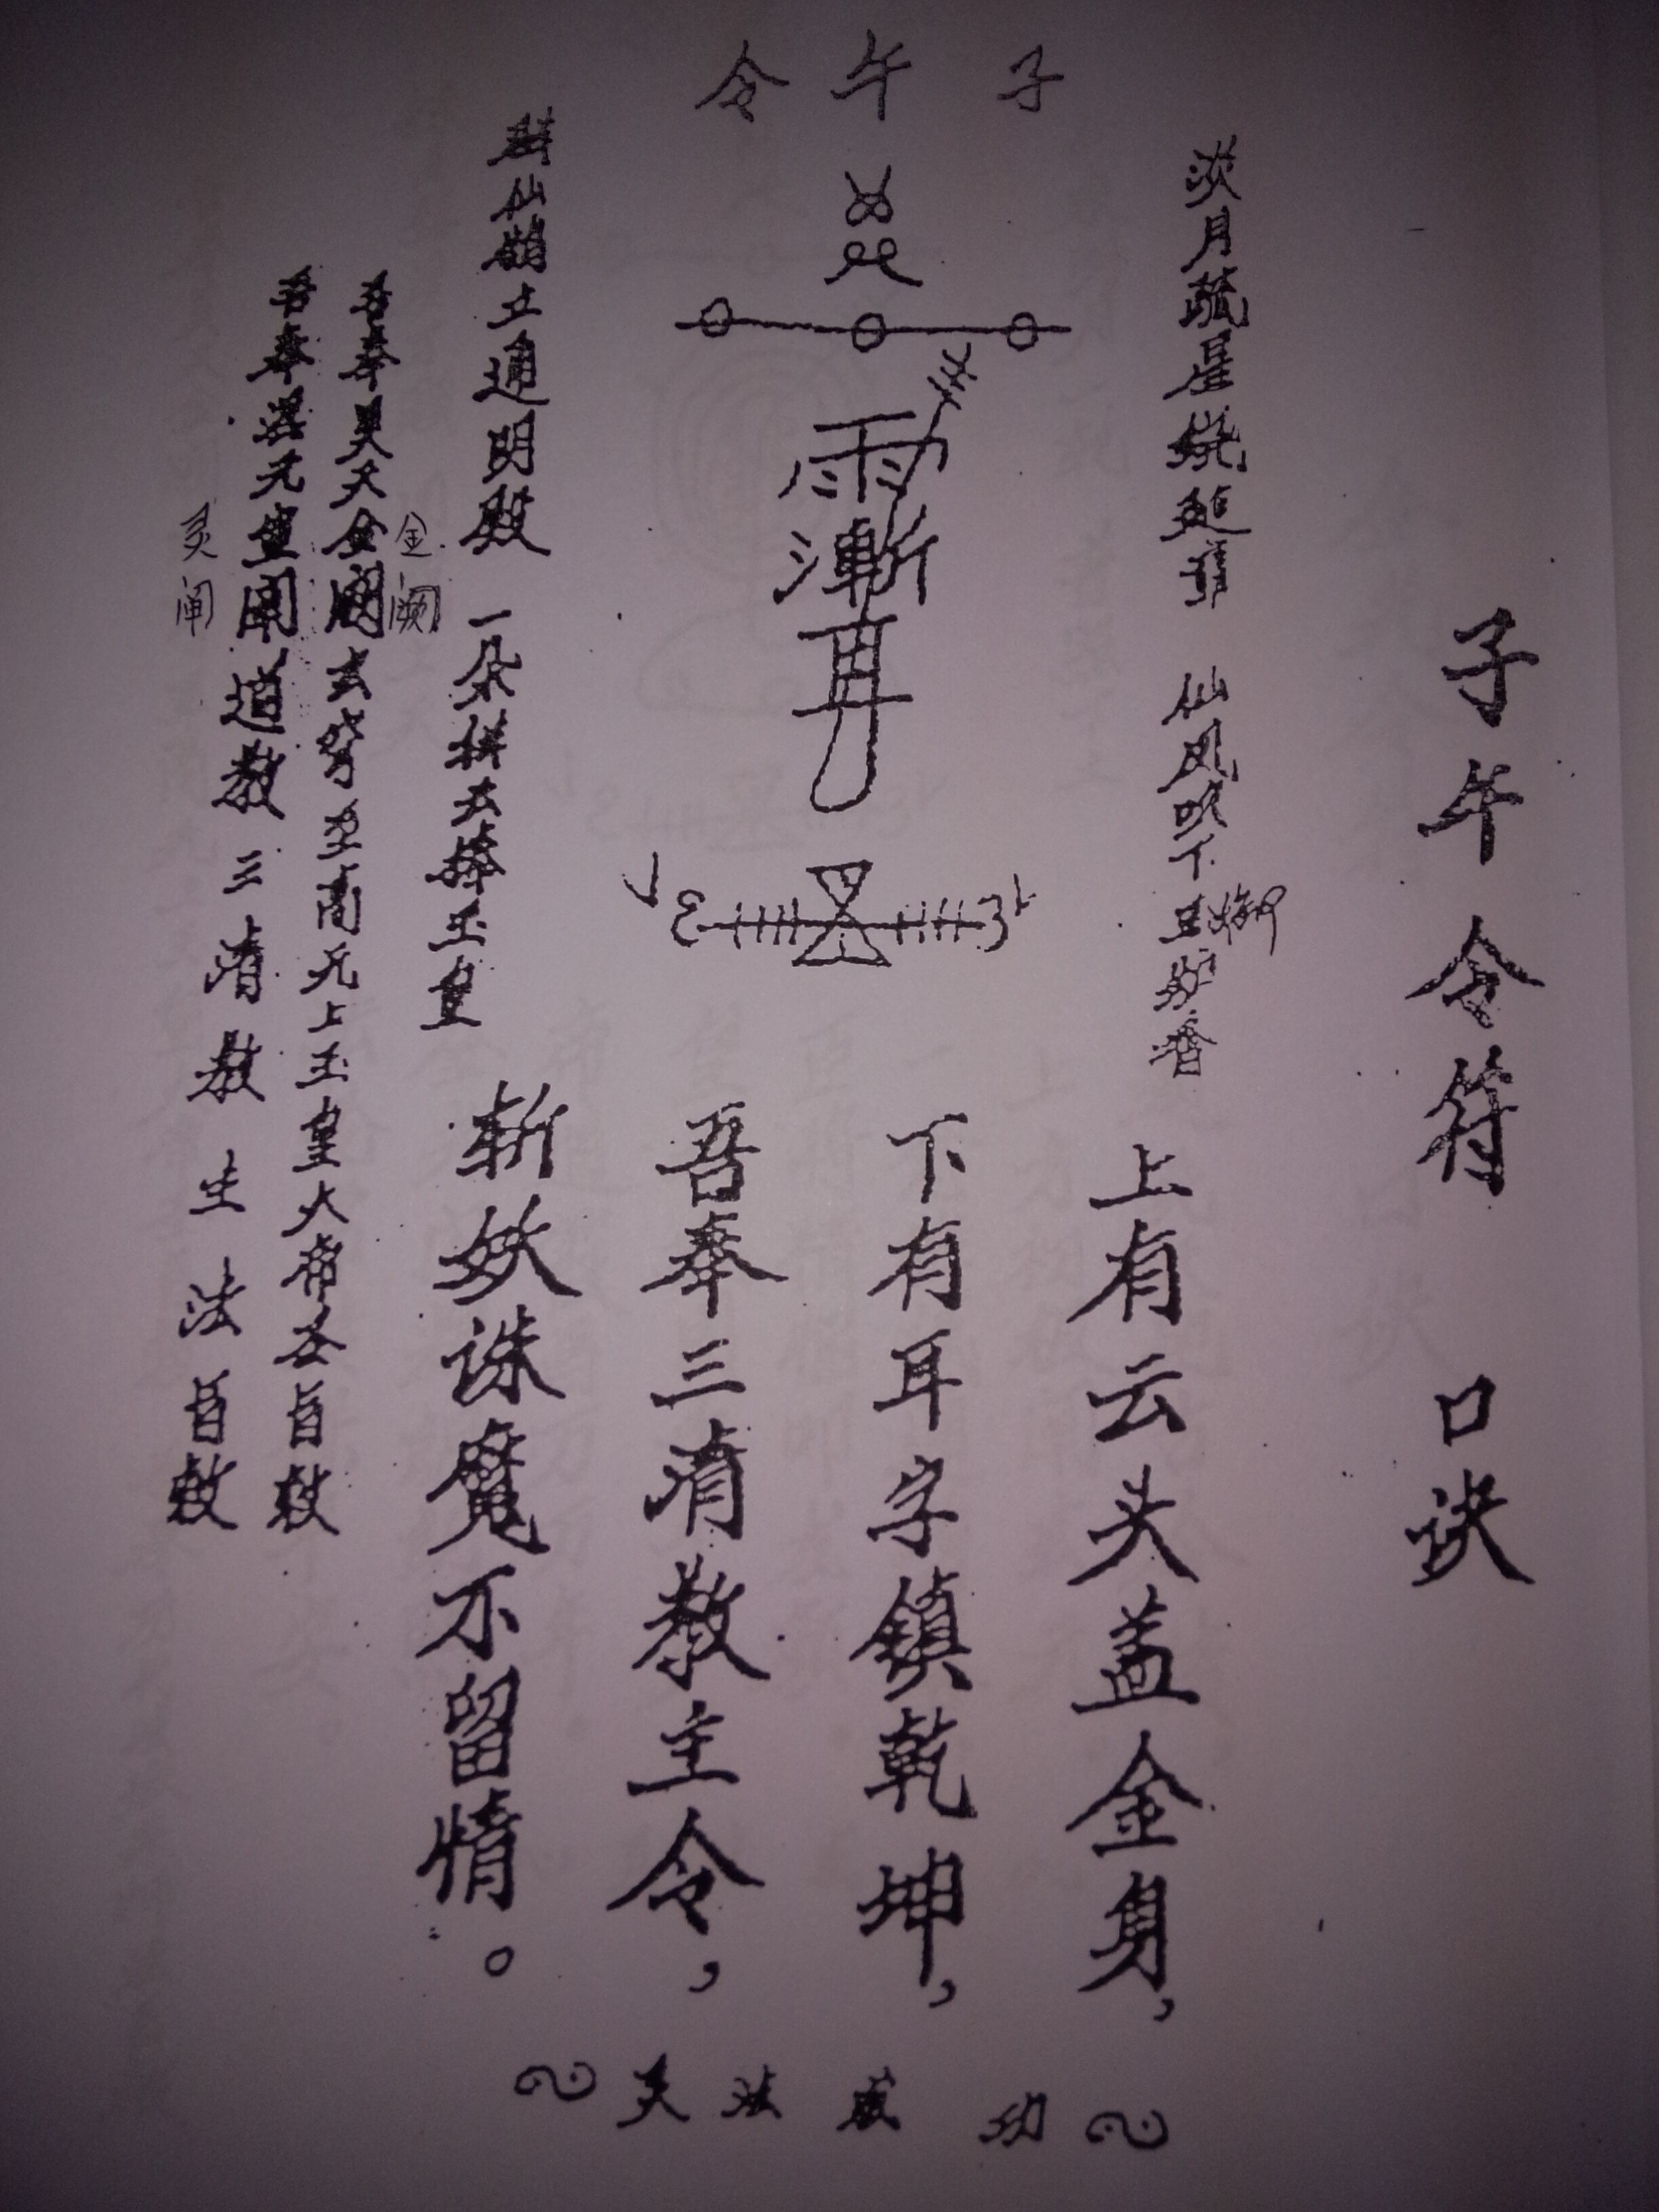 子午令符 口诀
淡月疏星绕建章 仙风吹下玉御炉香
上有云头盖金身,
下有耳字镇乾坤,
吾奉三清教主令,
斩妖诛魔不留情。
子午令
雨漸耳
仙鹤立通明殿 一朵拱云捧玉皇
金阙
吾奉昊天金阙玄穹至高无上玉皇大帝圣旨敕
吾奉混元皇阐道教三清教主法旨敕
灵阐
灵法成功